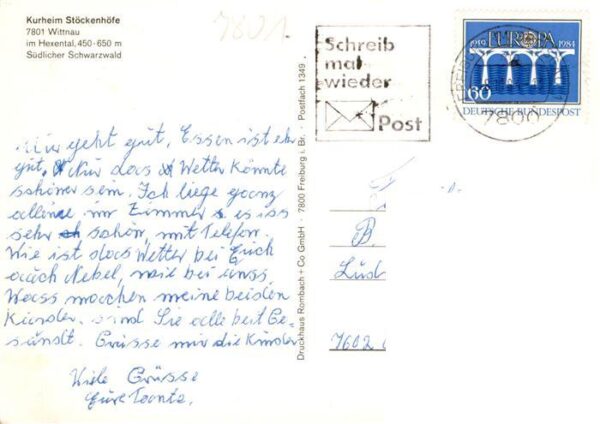 Kurheim Stöckenhöfe
7801 Wittnau
im Hexental, 450-650 m
Südlicher Schwarzwald
7801
Mir geht gut, Essen ist
gut, Nur das Wetter könnte
schöner sein. Ich liege ganz
alleine im Zimmer es iss
sehr schön, mit Telefon.
Wie ist das Wetter bei Euch
auch Nebel, wie bei unss,
Wass machen meine beiden
Kinder. sind Sie alle beit Ge-
sundt. Grüsse mir die Kinder
Viele Grüsse
Eure Tante.
Druckhaus Rombach + Co GmbH · 7800 Freiburg i. Br. · Postfach 1349
Schreib
mal
wieder
Post
1959 EUROPA 1984
60
DEUTSCHE BUNDESPOST
FREIBU
7800
B.
Lüd
7602